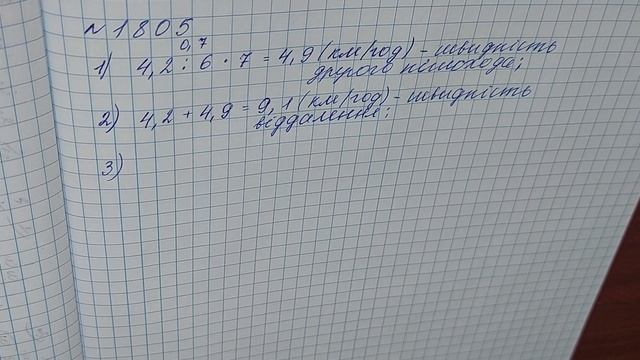 № 1805
0,7
1) 4,2 : 6 · 7 = 4,9 (км/год) - швидкість
другого пішохода;
2) 4,2 + 4,9 = 9,1 (км/год) - швидкість
віддалення;
3)